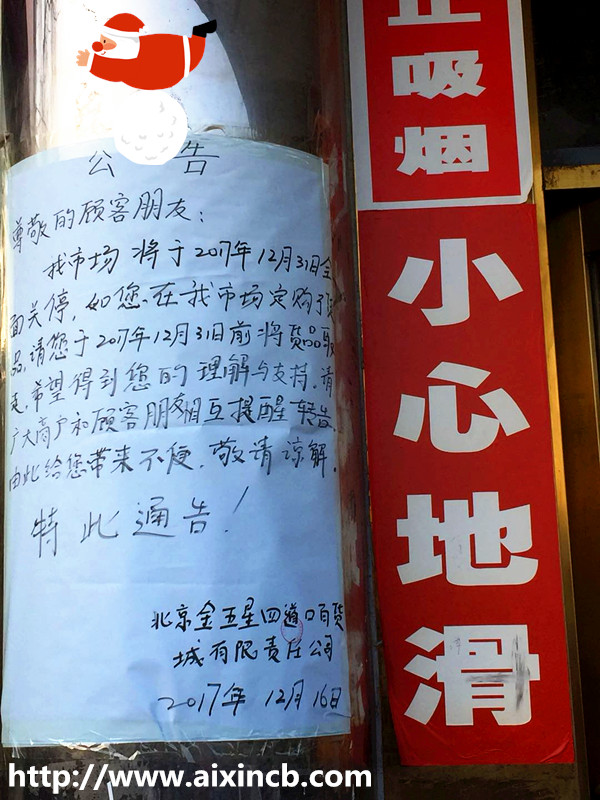 公告
尊敬的顾客朋友：
我市场将于2017年12月31日全
面关停，如您在我市场定购了货
品，请您于2017年12月31日前将货品取
走，希望得到您的理解与支持，请
广大商户和顾客朋友相互提醒转告。
由此给您带来不便，敬请谅解。
特此通告！
北京金五星四道口百货
城有限责任公司
2017年12月16日
止吸烟
小心地滑
http://www.aixincb.com